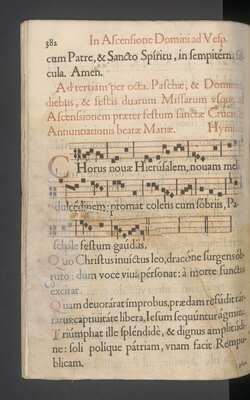 382
In Ascensione Domini ad Vesp.
cum Patre, & Sancto Spíritu, in sempitérna sǽ-
cula. Amen.
Ad tertiam per octa. Paschæ, & Domini
diebus, & festis duarum Missarum vsque
Ascensionem præter festum sanctæ Crucis
Annuntiationis beatæ Mariæ. Hymn
CHorus nouæ Hierúsalem, nouam me
dulcédinem; promat colens cum sóbriis, Pa-
schále festum gaúdiis.
Quo Christus inuíctus leo, dracóne surgens ób-
ruto: dum voce viua pérsonat: à morte functos
éxcitat.
Quam deuorárat ímprobus, prædam refúdit tár-
tarus: captiuitáte líbera, Iesum sequúntur ágmina.
Triúmphat ille spléndidè, & dignus amplitúdi-
ne: soli políque pátriam, vnam facit Rempú-
blicam.